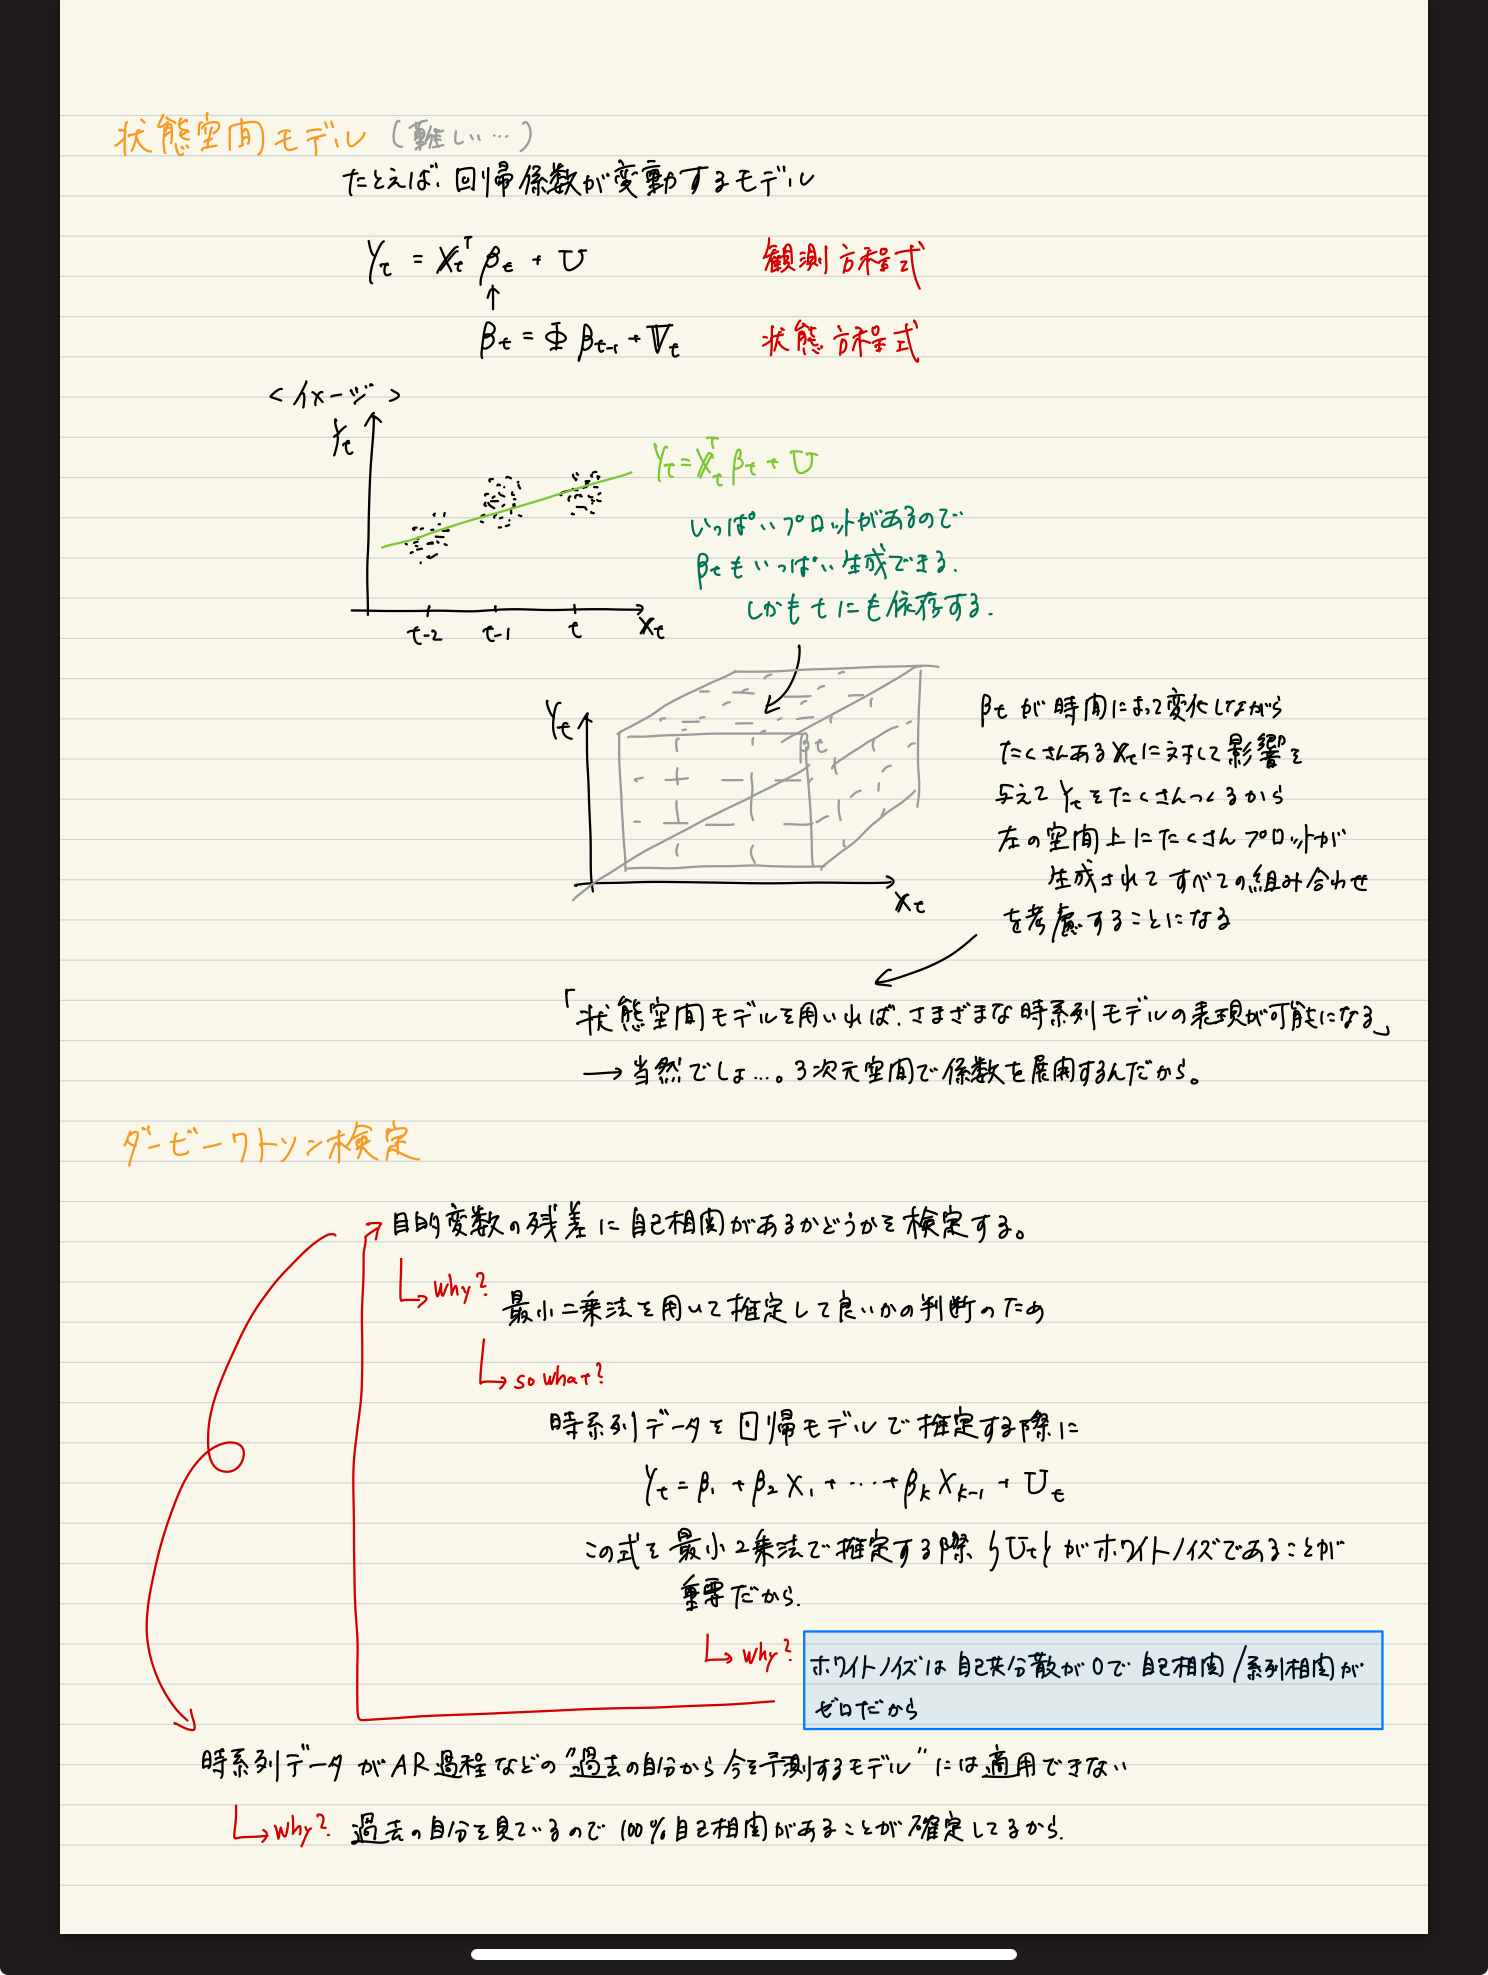 状態空間モデル（難しい…）
たとえば、回帰係数が変動するモデル
Yt = Xtᵀ βt + U 観測方程式
↑
βt = Φ βt-1 + Vt 状態方程式
＜イメージ＞
Yt
Yt = Xtᵀ βt + U
いっぱいプロットがあるので
βtもいっぱい生成できる.
しかもtにも依存する.
t-2 t-1 t Xt
Yt
βt
Xt
βtが時間によって変化しながら
たくさんあるXtに対して影響を
与えてYtをたくさんつくるから
左の空間上にたくさんプロットが
生成されてすべての組み合わせ
を考慮することになる
「状態空間モデルを用いれば、さまざまな時系列モデルの表現が可能になる」
→ 当然でしょ…。3次元空間で係数を展開するんだから。
ダービーワトソン検定
目的変数の残差に自己相関があるかどうかを検定する。
why?
最小二乗法を用いて推定して良いかの判断のため
so what?
時系列データを回帰モデルで推定する際に
Yt = β1 + β2 X1 + … + βk Xk-1 + Ut
この式を最小2乗法で推定する際{Ut}がホワイトノイズであることが
重要だから.
why?
ホワイトノイズは自己共分散が0で自己相関/系列相関が
ゼロだから
時系列データがAR過程などの"過去の自分から今を予測するモデル"には適用できない
why? 過去の自分を見ているので100%自己相関があることが確定してるから.